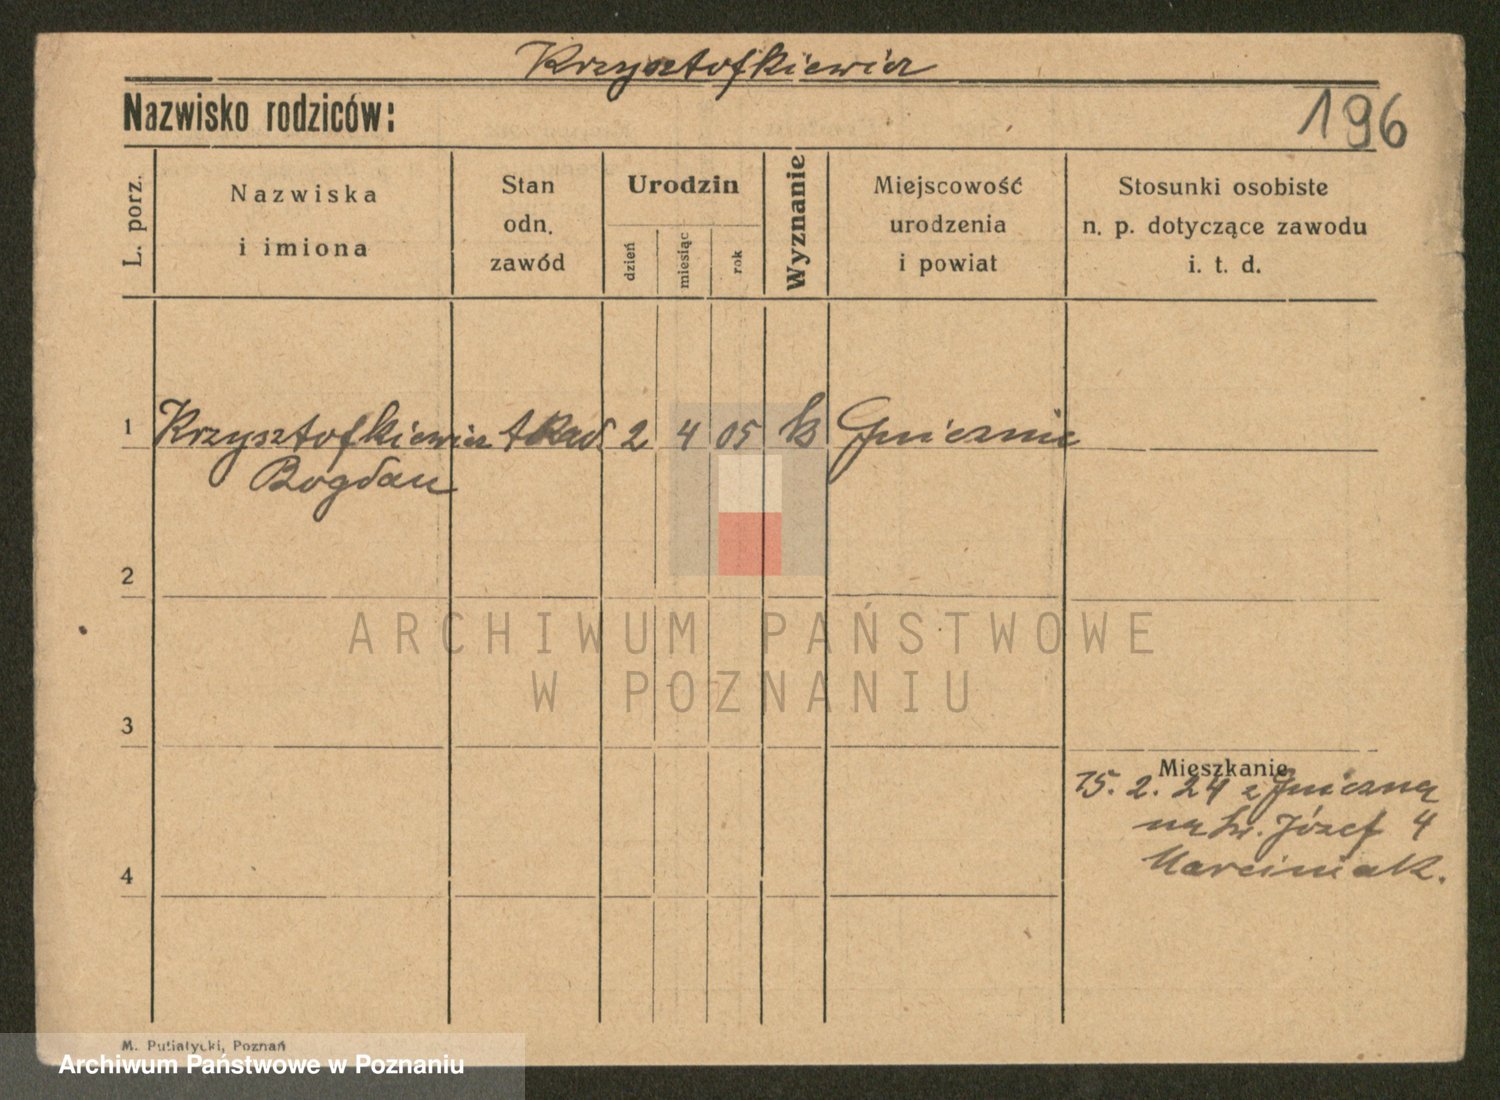 Krzysztofkiewicz
Nazwisko rodziców:
196
L. porz.
Nazwiska
i imiona
Stan
odn.
zawód
Urodzin
dzień
miesiąc
rok
Wyznanie
Miejscowość
urodzenia
i powiat
Stosunki osobiste
n. p. dotyczące zawodu
i. t. d.
1 Krzysztofkiewicz 2 4 05 k Gnieznie
Bogdan
2
3
4
Mieszkanie
15. 2. 24 z Gniezna
na św. Józef 4
Marciniak.
M. Putiatycki, Poznań
ARCHIWUM PAŃSTWOWE
W POZNANIU
Archiwum Państwowe w Poznaniu